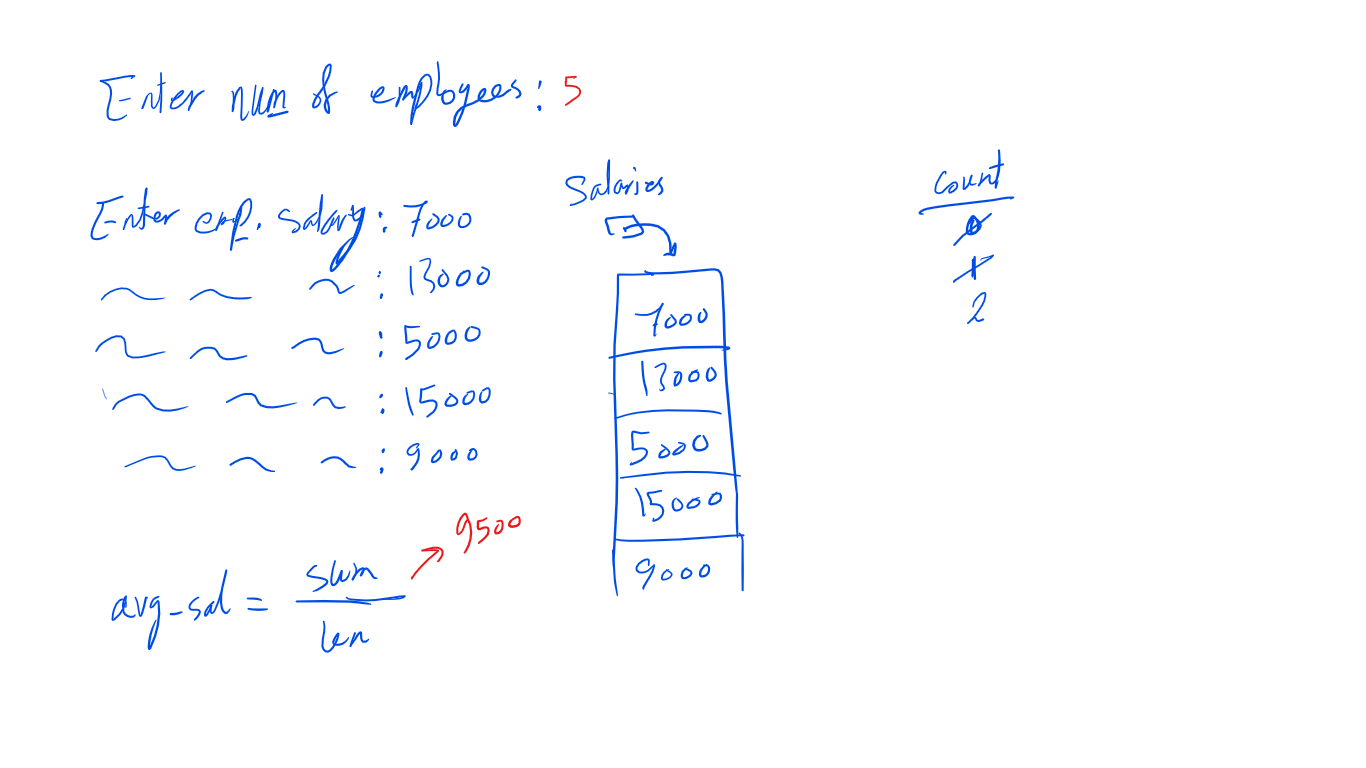 Enter num of employees: 5
Enter emp. salary: 7000
: 13000
: 5000
: 15000
: 9000
avg_sal = sum / len
9500
Salaries
7000
13000
5000
15000
9000
count
0
1
2